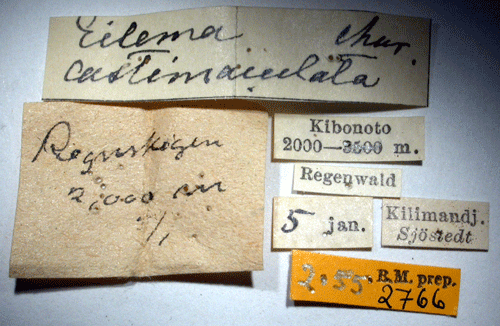 Eilema char.
castimaculata
Regnskogen
2,000 m
5/1
Kibonoto
2000—3000 m.
Regenwald
5 jan.
Kilimandj.
Sjöstedt
2.55. R.M. prep.
2766